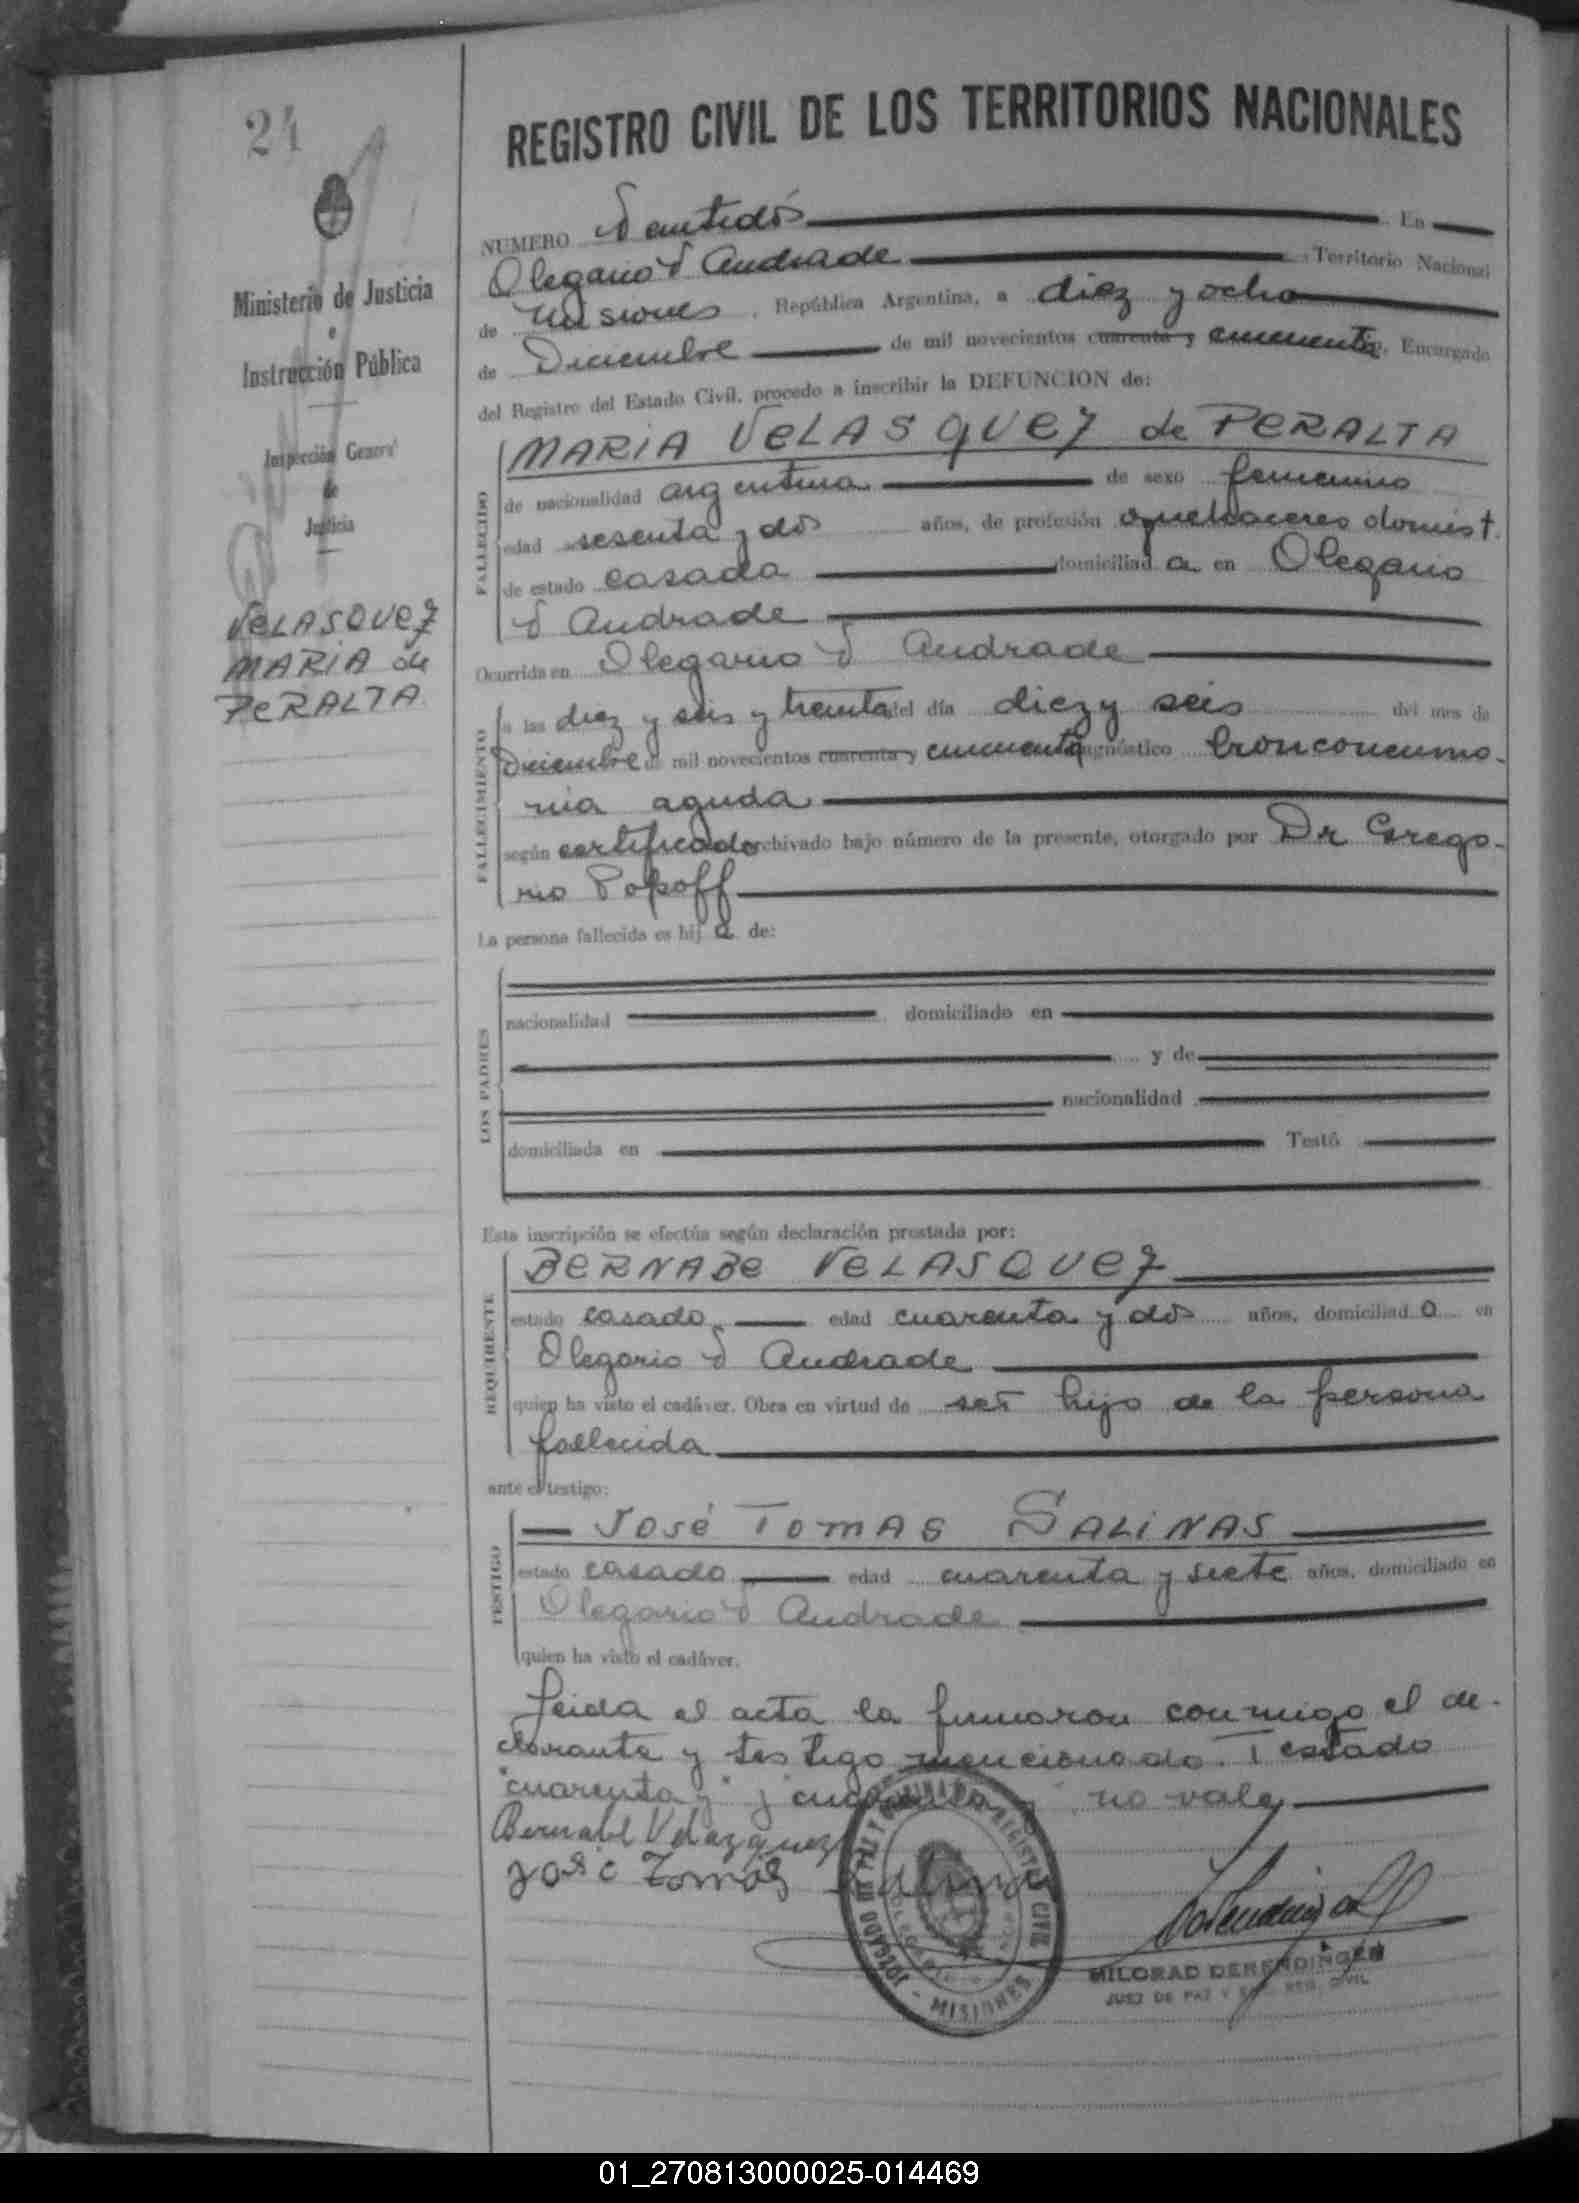 24
REGISTRO CIVIL DE LOS TERRITORIOS NACIONALES
Ministerio de Justicia
e
Instrucción Pública
Inspección General
de
Justicia
VELASQUEZ
MARIA de
PERALTA
NUMERO Veintidós En
Olegario V Andrade Territorio Nacional
de Misiones, República Argentina, a diez y ocho
de Diciembre de mil novecientos cuarenta y cincuenta, Encargado
del Registro del Estado Civil, procedo a inscribir la DEFUNCION de:
FALLECIDO
MARIA VELASQUEZ de PERALTA
de nacionalidad argentina de sexo femenino
edad sesenta y dos años, de profesión quehaceres domest.
de estado casada domiciliad a en Olegario
V Andrade
Ocurrida en Olegario V Andrade
FALLECIMIENTO
a las diez y seis y treinta del día diez y seis del mes de
Diciembre de mil novecientos cuarenta y cincuenta diagnóstico bronconeumo-
nia aguda
según certificado archivado bajo número de la presente, otorgado por Dr Grego-
rio Popoff
La persona fallecida es hij a de:
LOS PADRES
nacionalidad domiciliado en
y de
nacionalidad
domiciliada en Testó
Esta inscripción se efectúa según declaración prestada por:
REQUIRENTE
BERNABE VELASQUEZ
estado casado edad cuarenta y dos años, domiciliad o en
Olegario V Andrade
quien ha visto el cadáver. Obra en virtud de ser hijo de la persona
fallecida
ante el testigo:
TESTIGO
JOSÉ TOMAS SALINAS
estado casado edad cuarenta y siete años, domiciliado en
Olegario V Andrade
quien ha visto el cadáver.
Leida el acta la firmaron conmigo el de-
clarante y testigo mencionado. Testado
"cuarenta y" y "cuarenta y" no vale
Bernabe Velazquez
José Tomás Salinas
JUZGADO DE PAZ Y REGISTRO CIVIL
MISIONES
MILORAD DERENDINGER
JUEZ DE PAZ Y ENC. REG. CIVIL
01_270813000025-014469